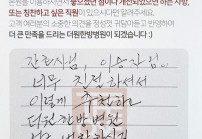 본원을 이용하시면서 좋으셨던 점이나 개선되었으면 하는 사항,
또는 칭찬하고 싶은 직원이 있으시다면 알려주세요.
고객 여러분의 소중한 의견을 정성껏 귀담아듣고 반영하여
더 큰 만족을 드리는 더원한방병원이 되겠습니다 :)
간호사님, 이
너무 친절하셔서
이렇게 추천하고
더원한방병원